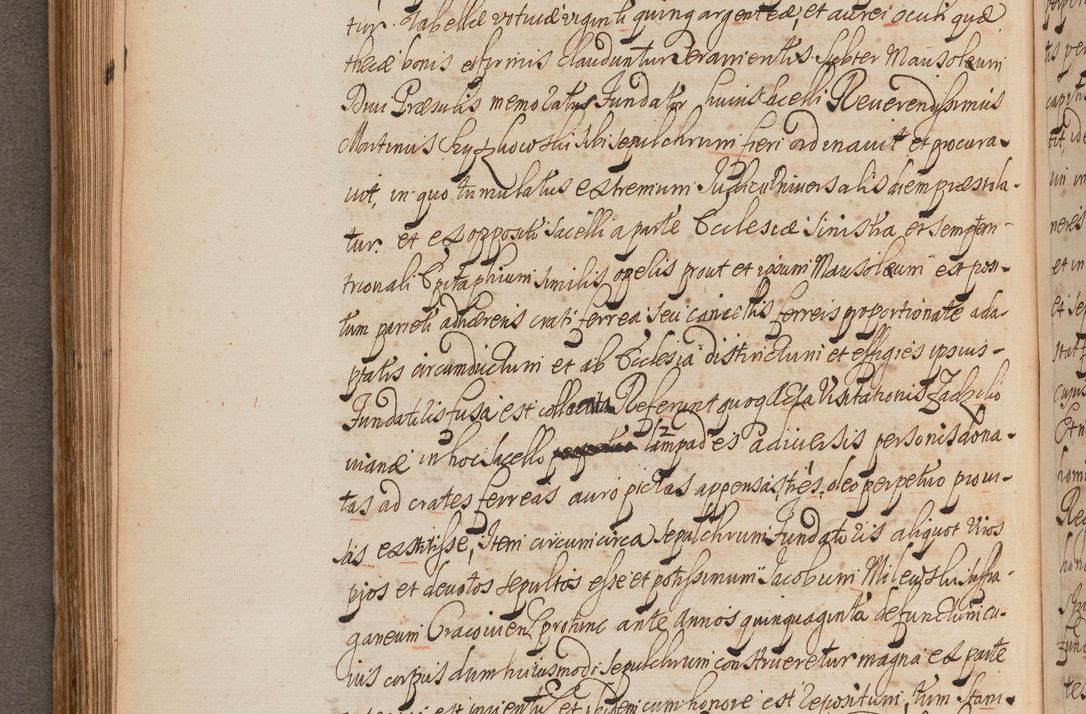 tur. Tabellæ votivæ viginti quinq argenteæ, et aurei oculi quæ
thecæ bonis et firmis clauduntur seramentis. Subter Mausoleum
Divi Præsulis memoratus Fundator huius sacelli Reverendissimus
Martinus Szyszkowski sibi sepulchrum fieri ordinavit et procura-
vit, in quo tumulatus extremum Judicij Universalis diem præstola-
tur. et ex opposito sacelli a parte Ecclesiæ sinistra, et Septem-
trionali Epitaphium similis operis prout et ipsum Mausoleum est posi-
tum parieti adhærens crati ferrea seu cancellis ferreis proportionate ada-
ptatis circumductum et ab Ecclesia distinctum et effigies ipsius-
Fundatoris fusa est collocata Referunt quoq Acta Visitationis Zadzilio
vianæ in hoc sacello lampades a diversis personis dona-
tas ad crates ferreas auro pictas appensas, tres, oleo perpetuo provi-
sis extitisse, Item circum circa sepulchrum Fundatoris aliquot viros
pios et devotos sepultos esse et potissimum Jacobum Milewski suffra-
ganeum Cracovien protunc ante Annos quinquaginta defunctum cu-
ius corpus dum huiusmodi sepulchrum construeretur magna ex parte
est inventum et ibidem cum honore est repositum, tum Stani-